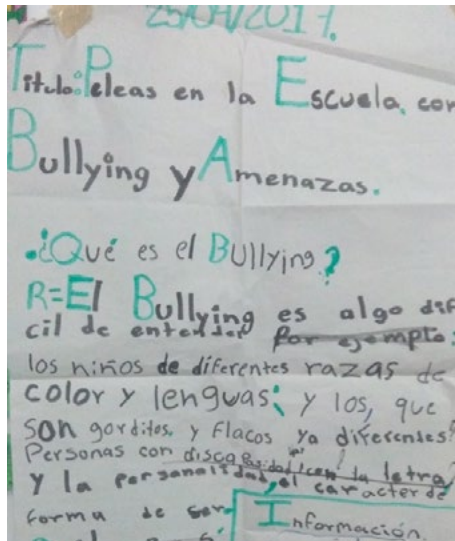 25/04/2017.
Titulo: Peleas en la Escuela, con
Bullying y Amenazas.
.¿Qué es el Bullying?
R=El Bullying es algo dif
cil de entender por ejemplo:
los niños de diferentes razas de
color y lenguas; y los, que
son gorditos. y flacos ya diferentes
Personas con la letra
y la personalidad, el caracter de
forma de ser
Información